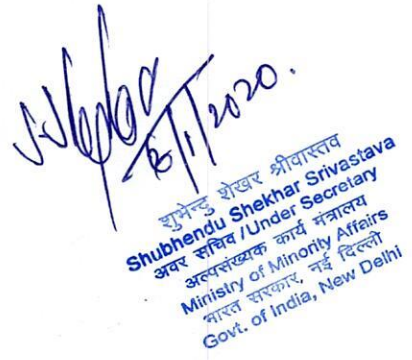 6/1/2020.
शुभेन्दु शेखर श्रीवास्तव
Shubhendu Shekhar Srivastava
अवर सचिव /Under Secretary
अल्पसंख्यक कार्य मंत्रालय
Ministry of Minority Affairs
भारत सरकार, नई दिल्ली
Govt. of India, New Delhi